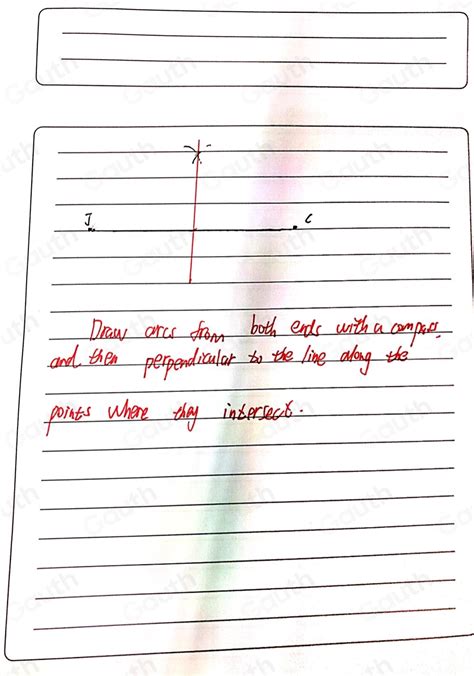 J C
Draw arcs from both ends with a compass.
and then perpendicular to the line along the
points where they intersect.